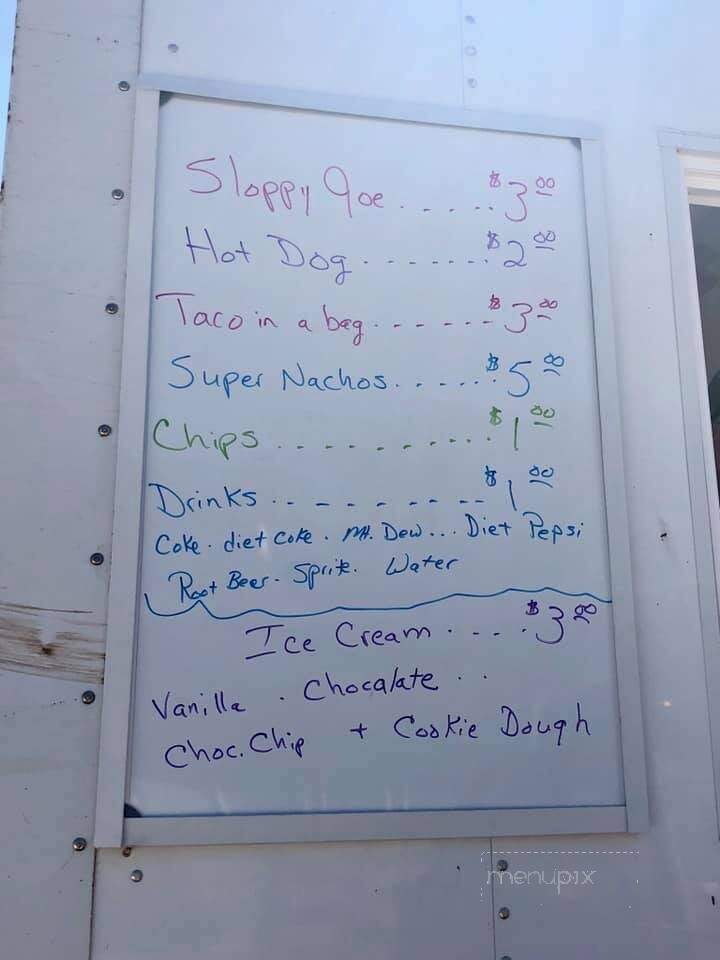 Sloppy Joe . . . . . . $3.00
Hot Dog . . . . . . . $2.00
Taco in a bag . . . . . . . $3.00
Super Nachos . . . . . . $5.00
Chips . . . . . . . . . . . $1.00
Drinks . . . . . . . . . . $1.00
Coke . diet coke . Mt. Dew... Diet Pepsi
Root Beer - Sprite. Water
Ice Cream . . . . $3.00
Vanilla . Chocalate . .
Choc. Chip + Cookie Dough
menupix